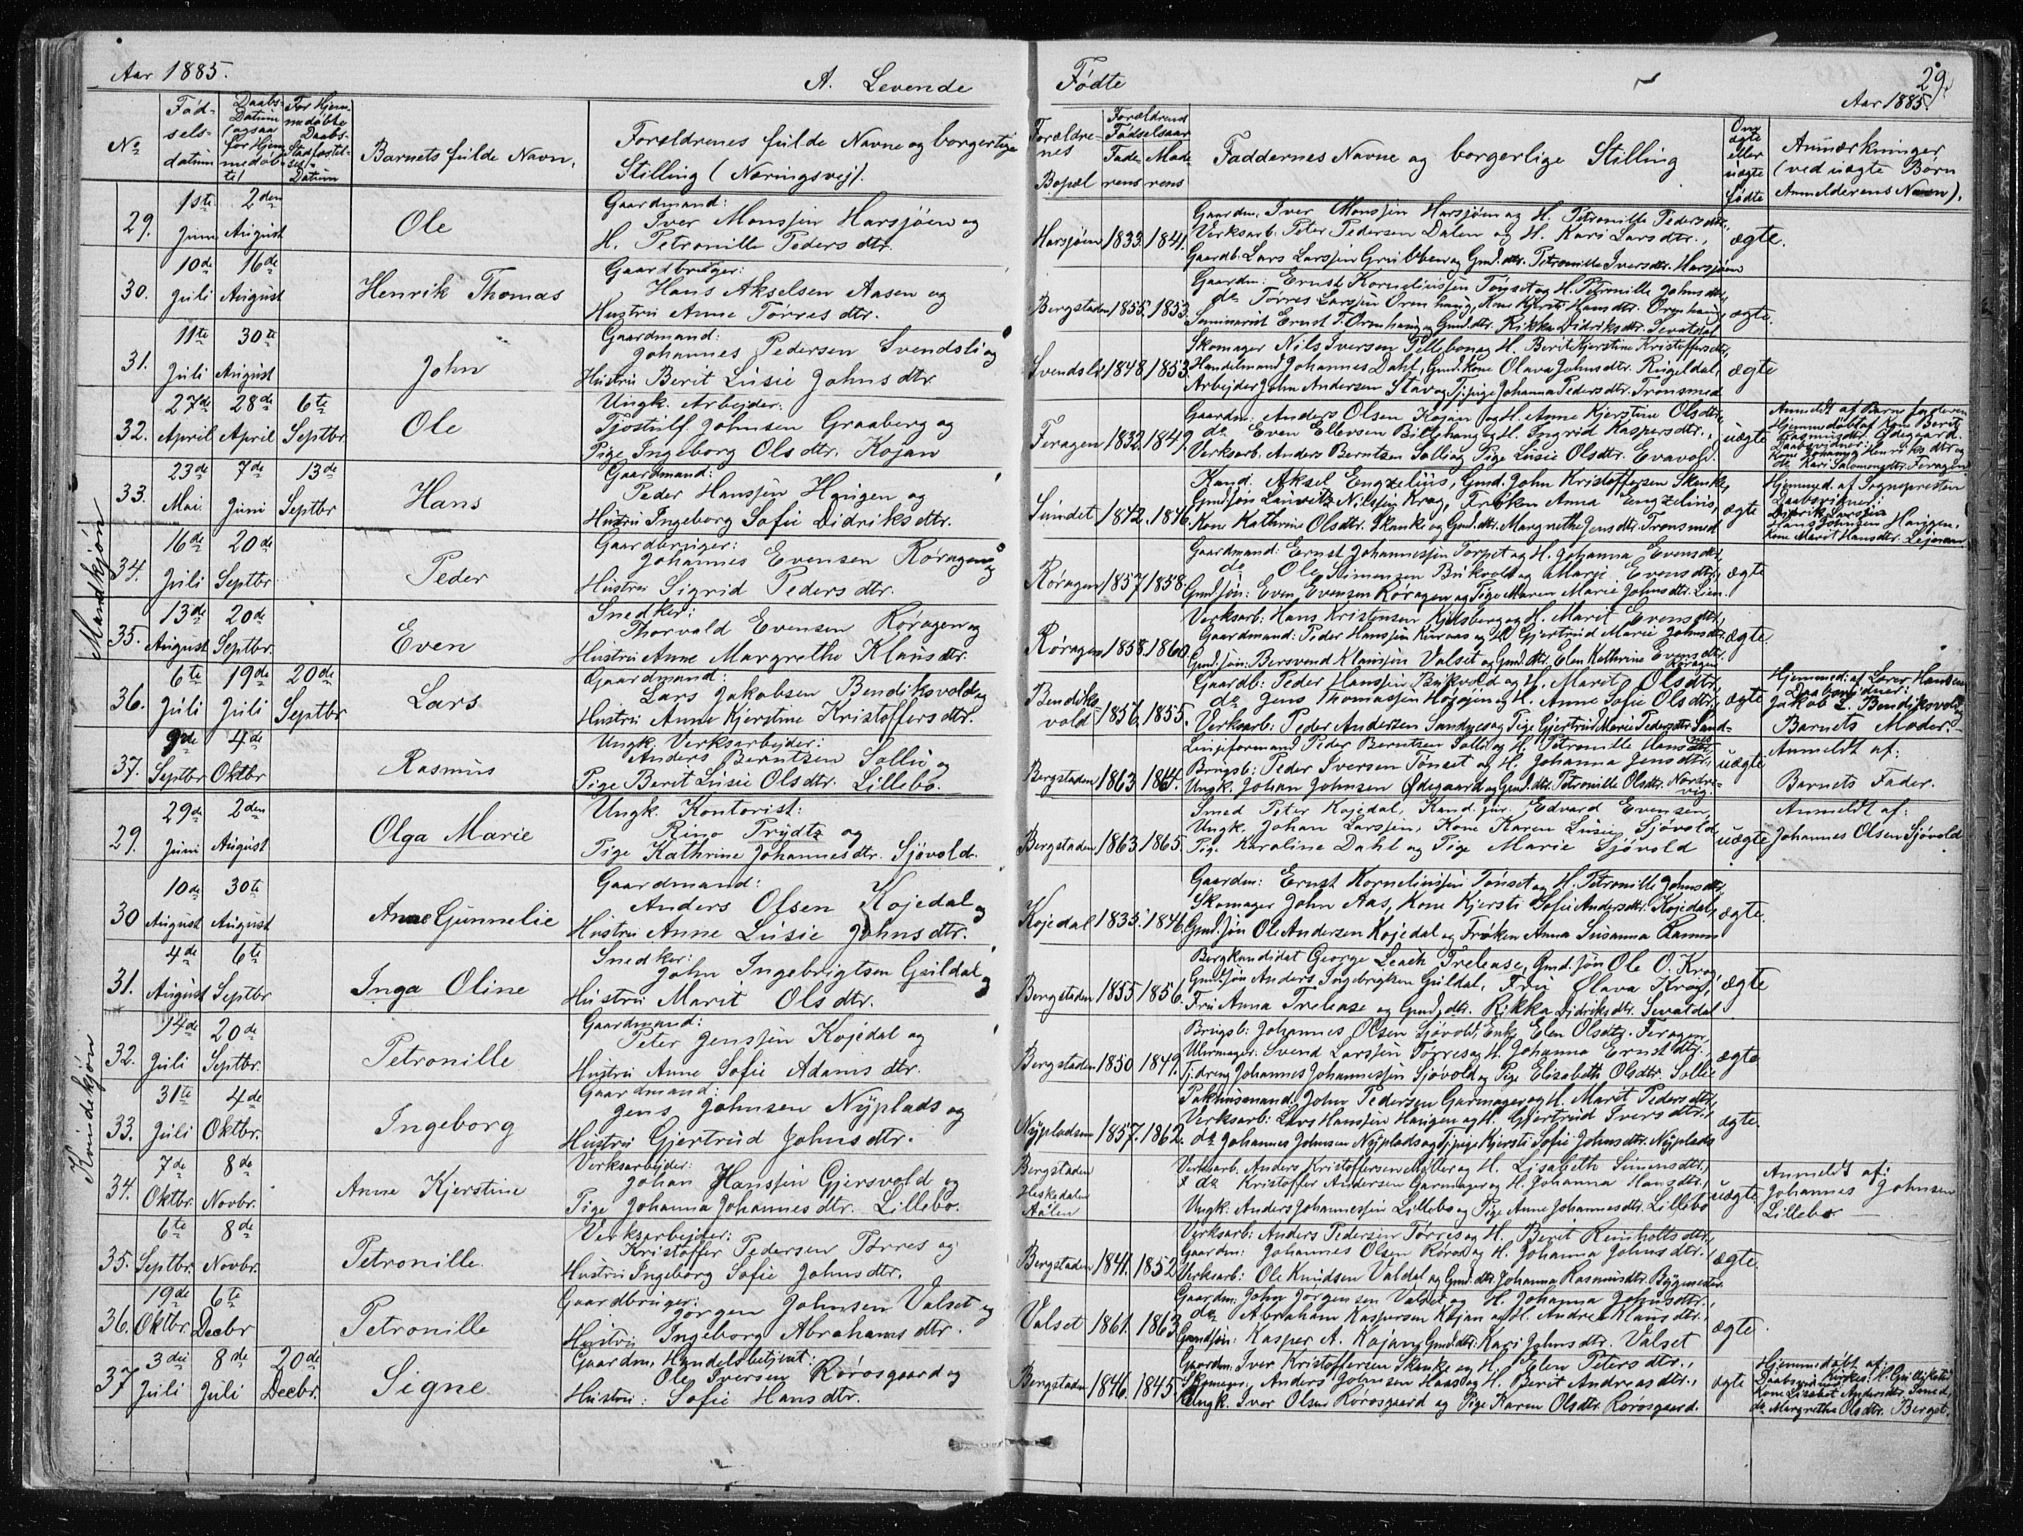 Aar 1885.
A. Levende Fødte
29.
Aar 1885.
No
Fødselsdatum
Daabs-Datum (ogsaa for Hjemmedøbte)
For Hjemmedøbte Daabs-Stadfæstelses-Datum
Barnets fulde Navn.
Forældrenes fulde Navne og borgerlige Stilling (Næringsvej).
Forældrenes Bopæl
Forældrenes Fødselsaar
Faderens Moderens
Faddernes Navne og borgerlige Stilling
Om ægte eller uægte Fødte
Anmærkninger (ved uægte Børn Anmelderens Navn).
Mandkjøn
29. 1ste Juni 2den August Ole
Gaardmand:
Iver Monssen Harsjøen og
H. Petronille Pedersdtr.
Harsjøen 1833. 1841.
Gaardm. Iver Monssen Harsjøen og H. Petronille Pedersdtr.,
Verksarb. Peter Pedersen Dalen og H. Kari Larsdtr.,
Gaardb. Lars Larssen Grubben og Gmd.dtr. Petronille Iversdtr. Harsjøen
ægte.
30. 10de Juli 16de August Henrik Thomas
Gaardbruger:
Hans Akselsen Aasen og
Hustru Anne Torresdtr.
Bergstaden 1855. 1853.
Gaardm. Ernst Korneliussen Tønset og H. Petronille Johnsdtr.,
do Torres Larssen Ormhaug, Kone Kjersti Hansdtr. Ormhaug
Seminarist Ernst T. Ormhaug og Gmd.dtr. Rikka Didriksdtr. Sevatdal
ægte.
31. 11te Juli 30te August John
Gaardmand:
Johannes Pedersen Svendsli og
Hustru Berit Lusie Johnsdtr
Svendsli 1848. 1853.
Skomager Nils Iversen Lillebo og H. Berit Kjerstine Kristoffersdtr.,
Handelsmand Johannes Dahl, Gmd. Kone Olava Johnsdtr. Rugeldal,
Arbejder John Andersen Stav og Tj.pige Johanna Pedersdtr. Tronsmed
ægte
32. 27de April 28de April 6te Septbr. Ole
Ungk. Arbejder:
Tjostulf Johnsen Graaberg og
Pige Ingeborg Olsdtr. Kojan
Feragen 1832. 1849.
Gaardm: Anders Olsen Kojan og H. Anne Kjerstine Olsdtr.,
do Even Ellevsen Billehaug og H. Ingrid Kaspersdtr.,
Verksarb. Anders Berntsen Solli og Pige Lusie Olsdtr. Evavold.
uægte
Anmeldt af Barnefaderen
Hjemmedøbt af Kone Berit
Rasmusdtr. Ødegaard.
Daabsvidner:
Kone Johanna Henriksdtr og
do Kari Salomonsdtr. Feragen
33. 23de Mai 7de Juni 13de Septbr Hans
Gaardmand:
Peder Hanssen Haugen og
Hustru Ingeborg Sofie Didriksdtr.
Sundet 1842. 1846.
Kand. Aksel Engzelius, Gmd. John Kristoffersen Skenke,
Gmd.søn Lauritz Nilssen Krog, Frøken Anna Engzelius,
Kone Kathrine Olsdtr. Skanke og Gmd.dtr. Margrethe Jensdtr. Tronsmed
ægte
Hjemmed. af Sognepresten
Daabsvidner:
Didrik Larssen
Hans Johnsen Haugen,
Kone Marit Hansdtr.
34. 16de Juli 20de Septbr Peder
Gaardbruger:
Johannes Evensen Røragen og
Hustru Sigrid Pedersdtr.
Røragen 1857. 1858.
Gaardmand: Ernst Johannessen Torpet og H. Johanna Evensdtr.
do Ole Simensen Bukvold og Marie Evensdtr.,
Gmd.søn: Even Evensen Røragen og Pige Maren Marie Johnsdtr. Lien
ægte
35. 13de August 20de Septbr. Even
Snedker:
Thorvald Evensen Røragen og
Hustru Anne Margrethe Klausdtr.
Røragen 1858. 1860.
Verksarb: Hans Kristensen Kjelsberg og H. Marit Evensdtr.,
Gaardmand: Peder Hanssen Kuraas og H. Gjertrud Marie Johnsdtr.
Gmd.søn: Bersvend Klaussen Valset og Gmd.dtr. Elen Kathrine Evensdtr. Røragen
ægte.
36. 6te Juli 19de Juli 20de Septbr Lars
Gaardmand:
Lars Jakobsen Bendiksvold og
Hustru Anne Kjerstine Kristoffersdtr.
Bendiksvold 1857. 1855.
Gaardb: Peder Hanssen Bukvold og H. Marit Olsdtr.,
do Jens Thomassen Høsøien og H. Anne Sofie Olsdtr.,
Verksarb: Peder Andersen Sandnes og Pige Gjertrud Marie Pedersdtr. Sandnes
ægte
Hjemmed: af Lærer Hansen
Daabsvidner:
Jakob L. Bendiksvold og
Barnets Moder.
37. 9de Septbr 4de Oktbr Rasmus
Ungk. Verksarbejder:
Anders Berntsen Solli og
Pige Berit Lusie Olsdtr. Lillebo.
Bergstaden 1863. 1864.
Linjeformand Peder Berntsen Solli og H. Petronille Hansdtr.
Brugsb: Peder Iversen Tønset og H. Johanna Jensdtr.,
Ungk. Johan Johnsen Ødegaard og Gmd.dtr. Petronille Olsdtr. Nordrevig.
uægte
Anmeldt af:
Barnets Fader.
Kvindekjøn
29. 29de Juni 2den August Olga Marie
Ungk. Kontorist:
Rino Prydtz og
Pige Kathrine Johannesdtr. Sjøvold.
Bergstaden 1863. 1865.
Smed Peter Kojedal, Kand. jur. Edvard Evensen,
Ungk. Johan Larssen, Kone Karen Lusie Sjøvold,
Pig. Karoline Dahl og Pige Marie Sjøvold
uægte
Anmeldt af:
Johannes Olsen Sjøvold
30 10de August 30te August Anne Gunnelie
Gaardmand:
Anders Olsen Kojedal og
Hustru Anne Lusie Johnsdtr.
Kojedal 1835. 1846.
Gaardm: Ernst Korneliussen Tønset og H. Petronille Johnsdtr.,
Skomager John Aas, Kone Kjersti Sofie Andersdtr. Kojedal,
Gmd.søn Ole Andersen Kojedal og Frøken Anna Susanna Ramm
ægte.
31. 4de August 6te Septbr Inga Oline
Snedker:
John Ingebrigtsen Guldal og
Hustru Marit Olsdtr.
Bergstaden 1855 1856.
Bergkandidat George Leach Trelease, Gmd.søn Ole O. Krog,
Gmd.søn Anders Ingebrigtsen Guldal, Fru Olava Krog,
Fru Anna Trelease og Gmd.dtr. Rikka Didriksdtr. Sevatdal
ægte
32. 14de Juli 20de Septbr. Petronille
Gaardmand:
Peter Jenssen Kojedal og
Hustru Anne Sofie Adamsdtr.
Bergstaden 1850 1849.
Brugsb: Johannes Olsen Sjøvold, Enke Elen Olsdtr. Feragen,
Uhrmager: Svend Larssen Tørres og H. Johanna Ernstdtr.
Tj.dreng Johannes Johannessen Sjøvold og Pige Elisabeth Olsdtr. Sollie
ægte
33. 31te Juli 4de Oktbr. Ingeborg
Gaardmand:
Jens Johnsen Nyplads og
Hustru Gjertrud Johnsdtr.
Nypladsen 1857. 1862.
Pakhusmand John Pedersen Garmager og H. Marit Pedersdtr.
Verksarb: Lars Hanssen Haugen og H. Gjertrud Iversdtr.,
do Johannes Johnsen Nyplads og Tj.pige Kjersti Sofie Johnsdtr. Nyplads
ægte.
34. 7de Oktbr. 8de Novbr. Anne Kjerstine
Verksarbejder:
Johan Hanssen Gjersvold og
Pige Johanna Johannesdtr. Lillebo.
Bergstaden
Heskedalen
Aalen
Verksarb. Anders Kristoffersen Møller og H. Lisabeth Simensdtr.,
do Kristoffer Andersen Garmager og H. Johanna Hansdtr.,
Ungk. Anders Johannessen Lillebo og Pige Anne Johannesdtr. Lillebo
uægte
Anmeldt af:
Johannes Johnsen
Lillebo.
35. 6te Septbr. 8de Novbr. Petronille.
Verksarbejder:
Kristoffer Pedersen Tørres og
Hustru Ingeborg Sofie Johnsdtr.
Bergstaden 1841. 1852
Verksarb: Anders Pedersen Tørres og H. Berit Reinholtsdtr.,
Gaardm: Johannes Olsen Røros og H. Johanna Johnsdtr.,
Verksarb: Ole Knudsen Valdal og Gmd.dtr. Johanna Rasmusdtr. Bygmester
ægte.
36. 19de Oktbr. 6te Decbr Petronille
Gaardbruger:
Jørgen Johnsen Valset og
Hustru Ingeborg Abrahamsdtr.
Valset 1861. 1863.
Gaardm: John Jørgensen Valset og H. Johanna Johnsdtr.,
do Abraham Kaspersen Kojan og H. Andrea Klausdtr.,
Gmd.søn: Kasper A. Kojan, Gmd.dtr. Kari Johnsdtr. Valset
ægte.
37 3die Juli 8de Juli 20de Decbr. Signe
Gaardm. Handelsbetjent:
Ole Iversen Rørosgaard og
Hustru: Sofie Hansdtr.
Bergstaden 1846. 1845.
Gaardm: Iver Kristoffersen Skenke og H. Elen Petersdtr.,
Skomager, Anders Johnsen Haas og H. Berit Andreasdtr.,
Ungk. Iver Olsen Rørosgaard og Pige Karen Olsdtr. Rorosgaard.
ægte
Hjemmedøbt af:
Daabsvidner:
Kone Lisabet Andersdtr. Smed,
do Margrethe Olsdtr. Berget.